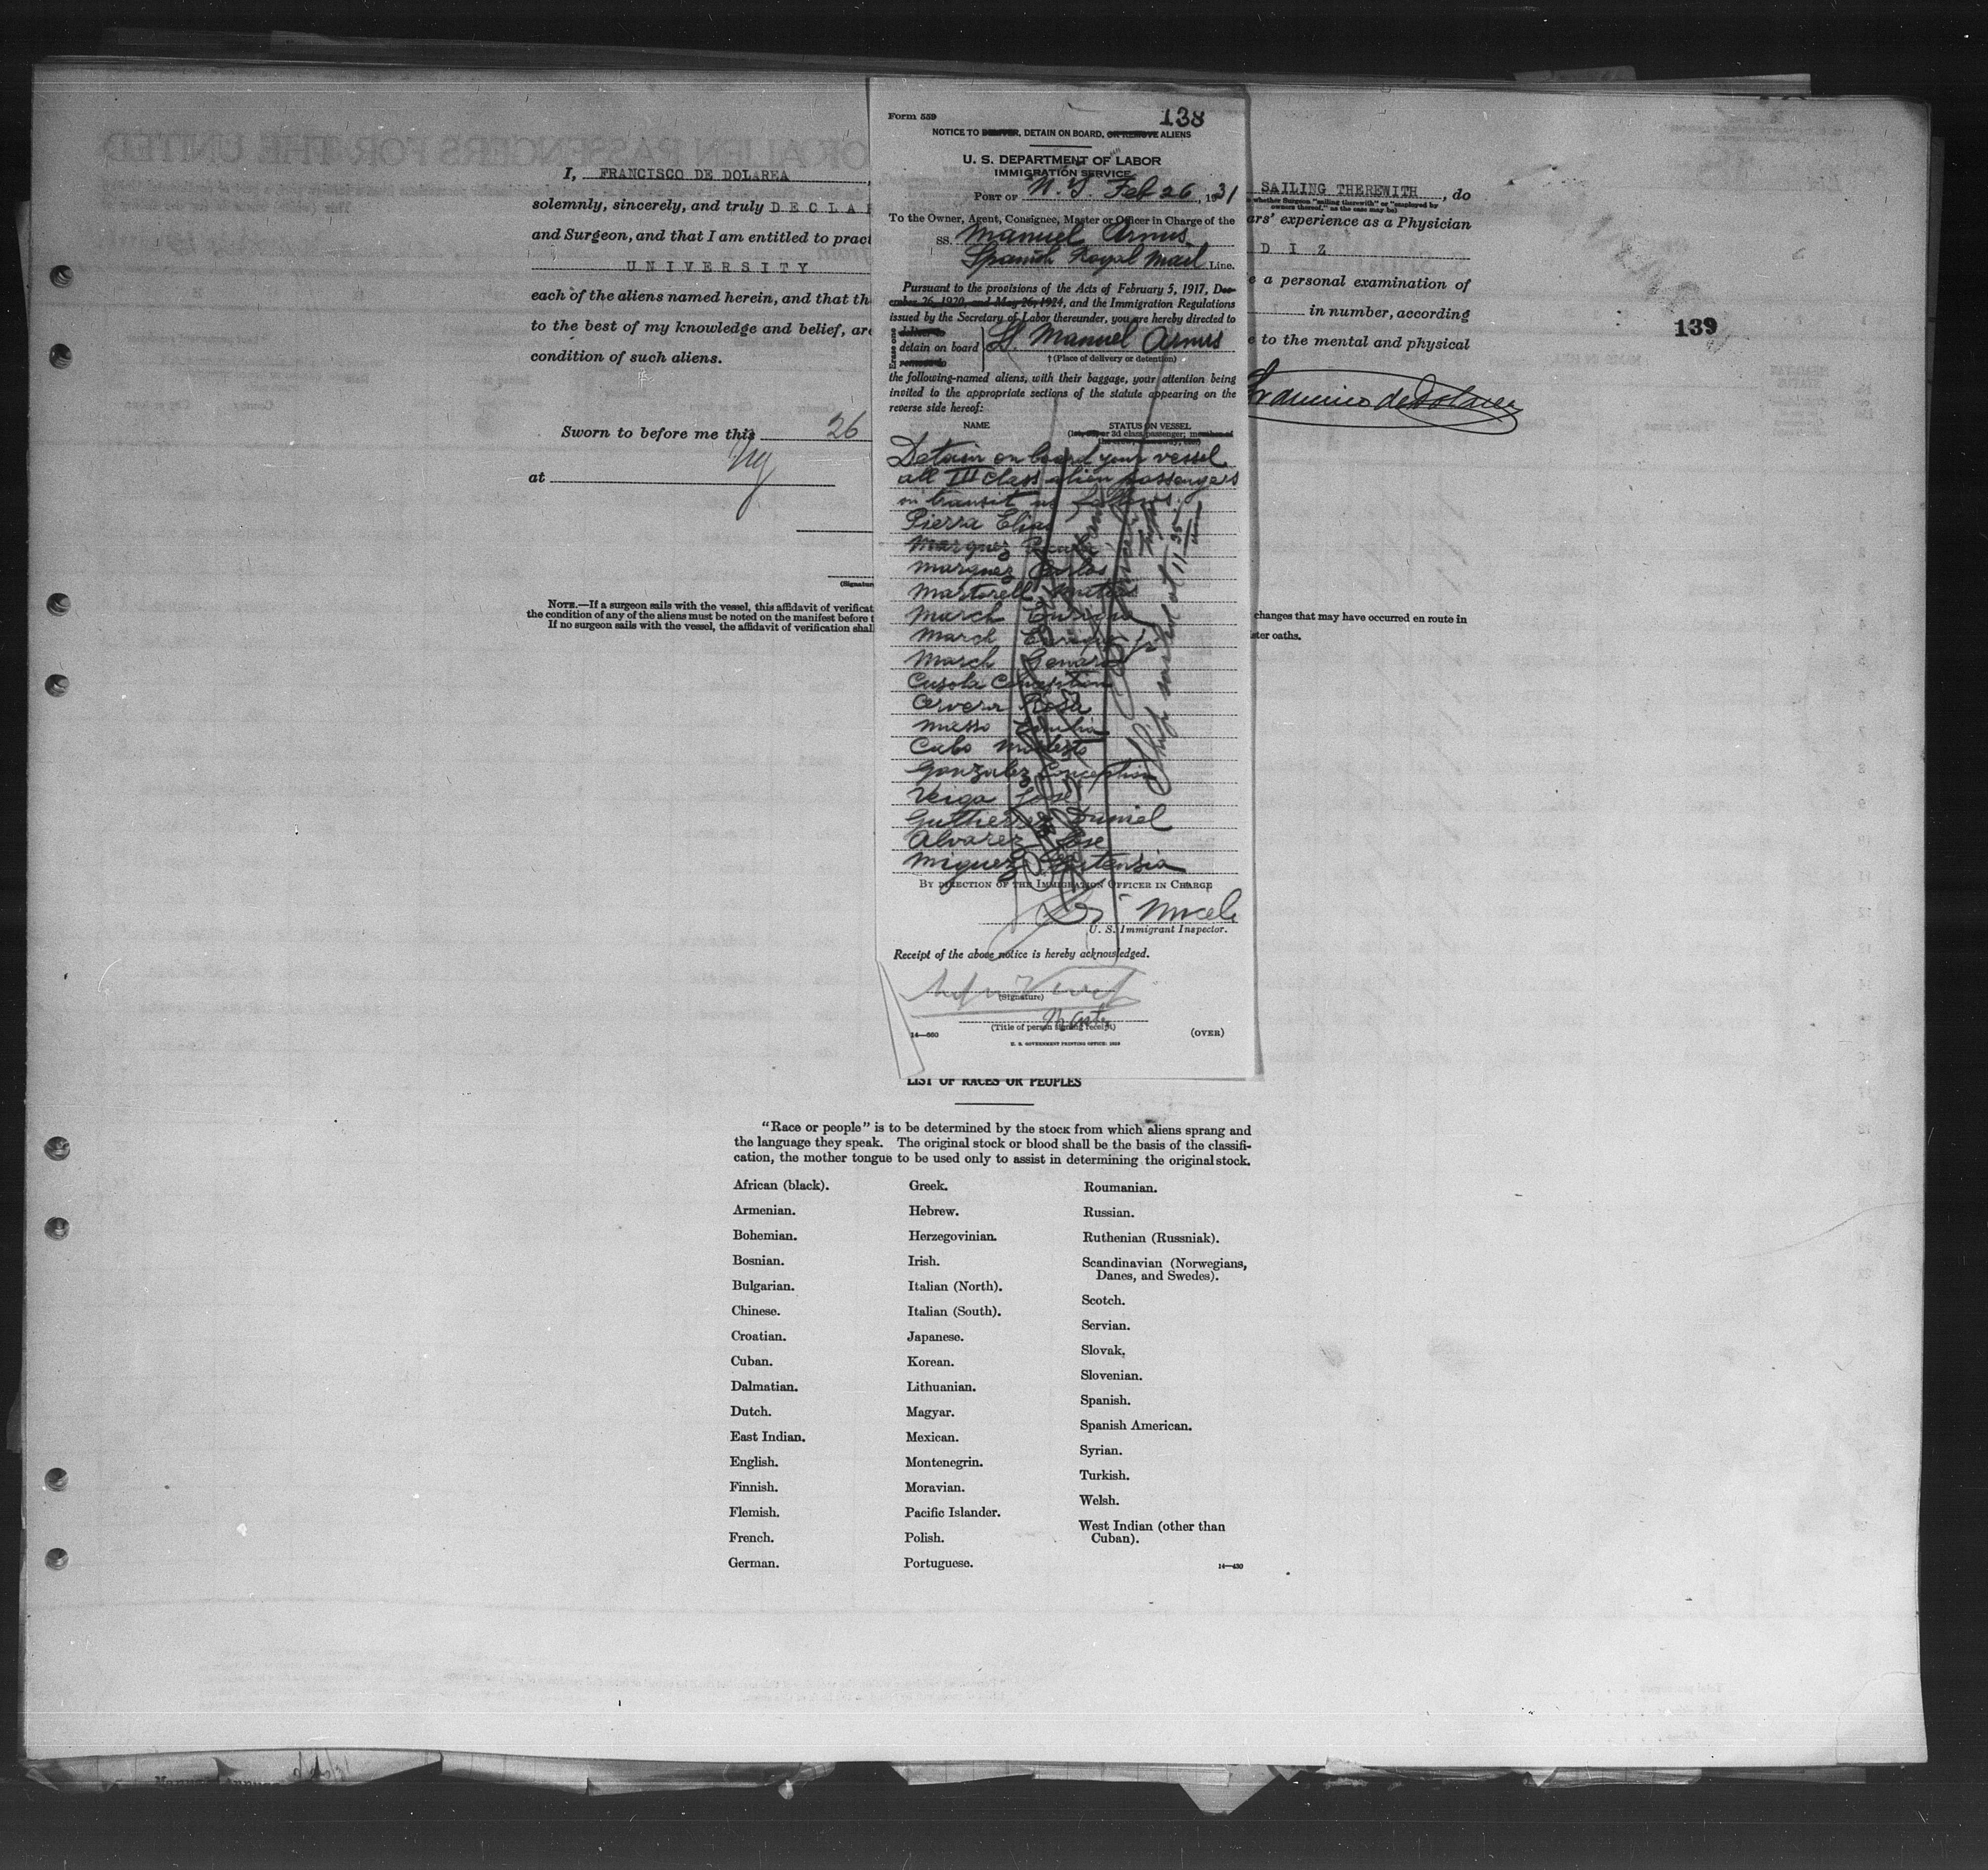 I, FRANCISCO DE DOLAREA
solemnly, sincerely, and truly DECLAR
and Surgeon, and that I am entitled to pract
UNIVERSITY
each of the aliens named herein, and that th
to the best of my knowledge and belief, are
condition of such aliens.
Sworn to before me this 26
at ny
(Signatur
NOTE.—If a surgeon sails with the vessel, this affidavit of verificat
the condition of any of the aliens must be noted on the manifest before t
If no surgeon sails with the vessel, the affidavit of verification shal
Form 559
138
NOTICE TO DELIVER, DETAIN ON BOARD, OR REMOVE ALIENS
U. S. DEPARTMENT OF LABOR
IMMIGRATION SERVICE
PORT OF N. Y. Feb 26, 1931
To the Owner, Agent, Consignee, Master or Officer in Charge of the
SS. Manuel Arnus
Spanish Royal Mail Line.
Pursuant to the provisions of the Acts of February 5, 1917, Dec-
ember 26, 1920, and May 26, 1924, and the Immigration Regulations
issued by the Secretary of Labor thereunder, you are hereby directed to
Erase one
deliver to
detain on board
remove to
St. Manuel Arnus
† (Place of delivery or detention)
the following-named aliens, with their baggage, your attention being
invited to the appropriate sections of the statute appearing on the
reverse side hereof:
NAME STATUS ON VESSEL
Detain on board your vessel
all III class alien passengers
in transit as follows:
Pierra Elias
Marquez
Marquez Carlos
Martorell Mateo
March Enrique
March Enrique Jr
March Genara
Cusola Conception
Cervera Rosa
Masso Emilia
Cubo Modesto
Gonzalez Conception
Veiga Jose
Guttierrez Daniel
Alvarez Jose
Miguez Hortensia
Ship sailed at 11 35
BY DIRECTION OF THE IMMIGRATION OFFICER IN CHARGE
U. S. Immigrant Inspector.
Receipt of the above notice is hereby acknowledged.
(Signature)
Master
(Title of person signing receipt)
14—560
(OVER)
U. S. GOVERNMENT PRINTING OFFICE: 1929
SAILING THEREWITH, do
whether Surgeon "sailing therewith" or "employed by
owners thereof," as the case may be)
ars' experience as a Physician
D I Z
e a personal examination of
in number, according
e to the mental and physical
Francisco de Dolarea
139
changes that may have occurred en route in
ster oaths.
LIST OF RACES OR PEOPLES
"Race or people" is to be determined by the stock from which aliens sprang and
the language they speak. The original stock or blood shall be the basis of the classifi-
cation, the mother tongue to be used only to assist in determining the original stock.
African (black).
Armenian.
Bohemian.
Bosnian.
Bulgarian.
Chinese.
Croatian.
Cuban.
Dalmatian.
Dutch.
East Indian.
English.
Finnish.
Flemish.
French.
German.
Greek.
Hebrew.
Herzegovinian.
Irish.
Italian (North).
Italian (South).
Japanese.
Korean.
Lithuanian.
Magyar.
Mexican.
Montenegrin.
Moravian.
Pacific Islander.
Polish.
Portuguese.
Roumanian.
Russian.
Ruthenian (Russniak).
Scandinavian (Norwegians,
Danes, and Swedes).
Scotch.
Servian.
Slovak.
Slovenian.
Spanish.
Spanish American.
Syrian.
Turkish.
Welsh.
West Indian (other than
Cuban).
14—430